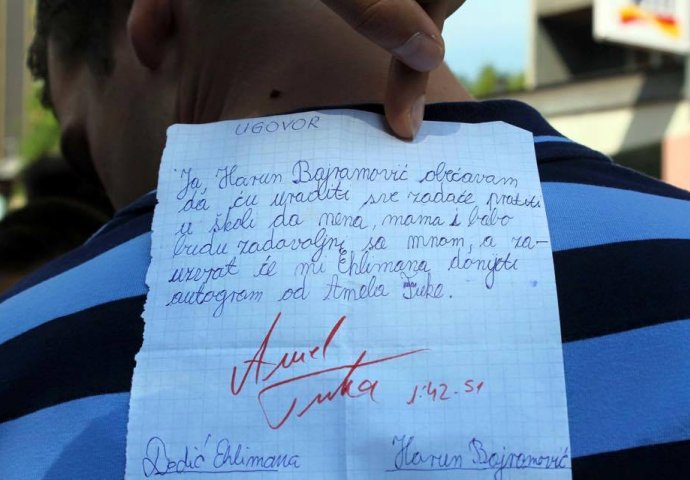 UGOVOR
Ja, Harun Bajramović obćavam
da ću uraditi sve zadaće, pratiti
u školi da nena, mama i babo
budu zadovoljni sa mnom, a za-
uzvrat će mi Ehlimana donijeti
autogram od Amela Tuke.
Amel
Tuka 1:42.51
Dedić Ehlimana Harun Bajramović